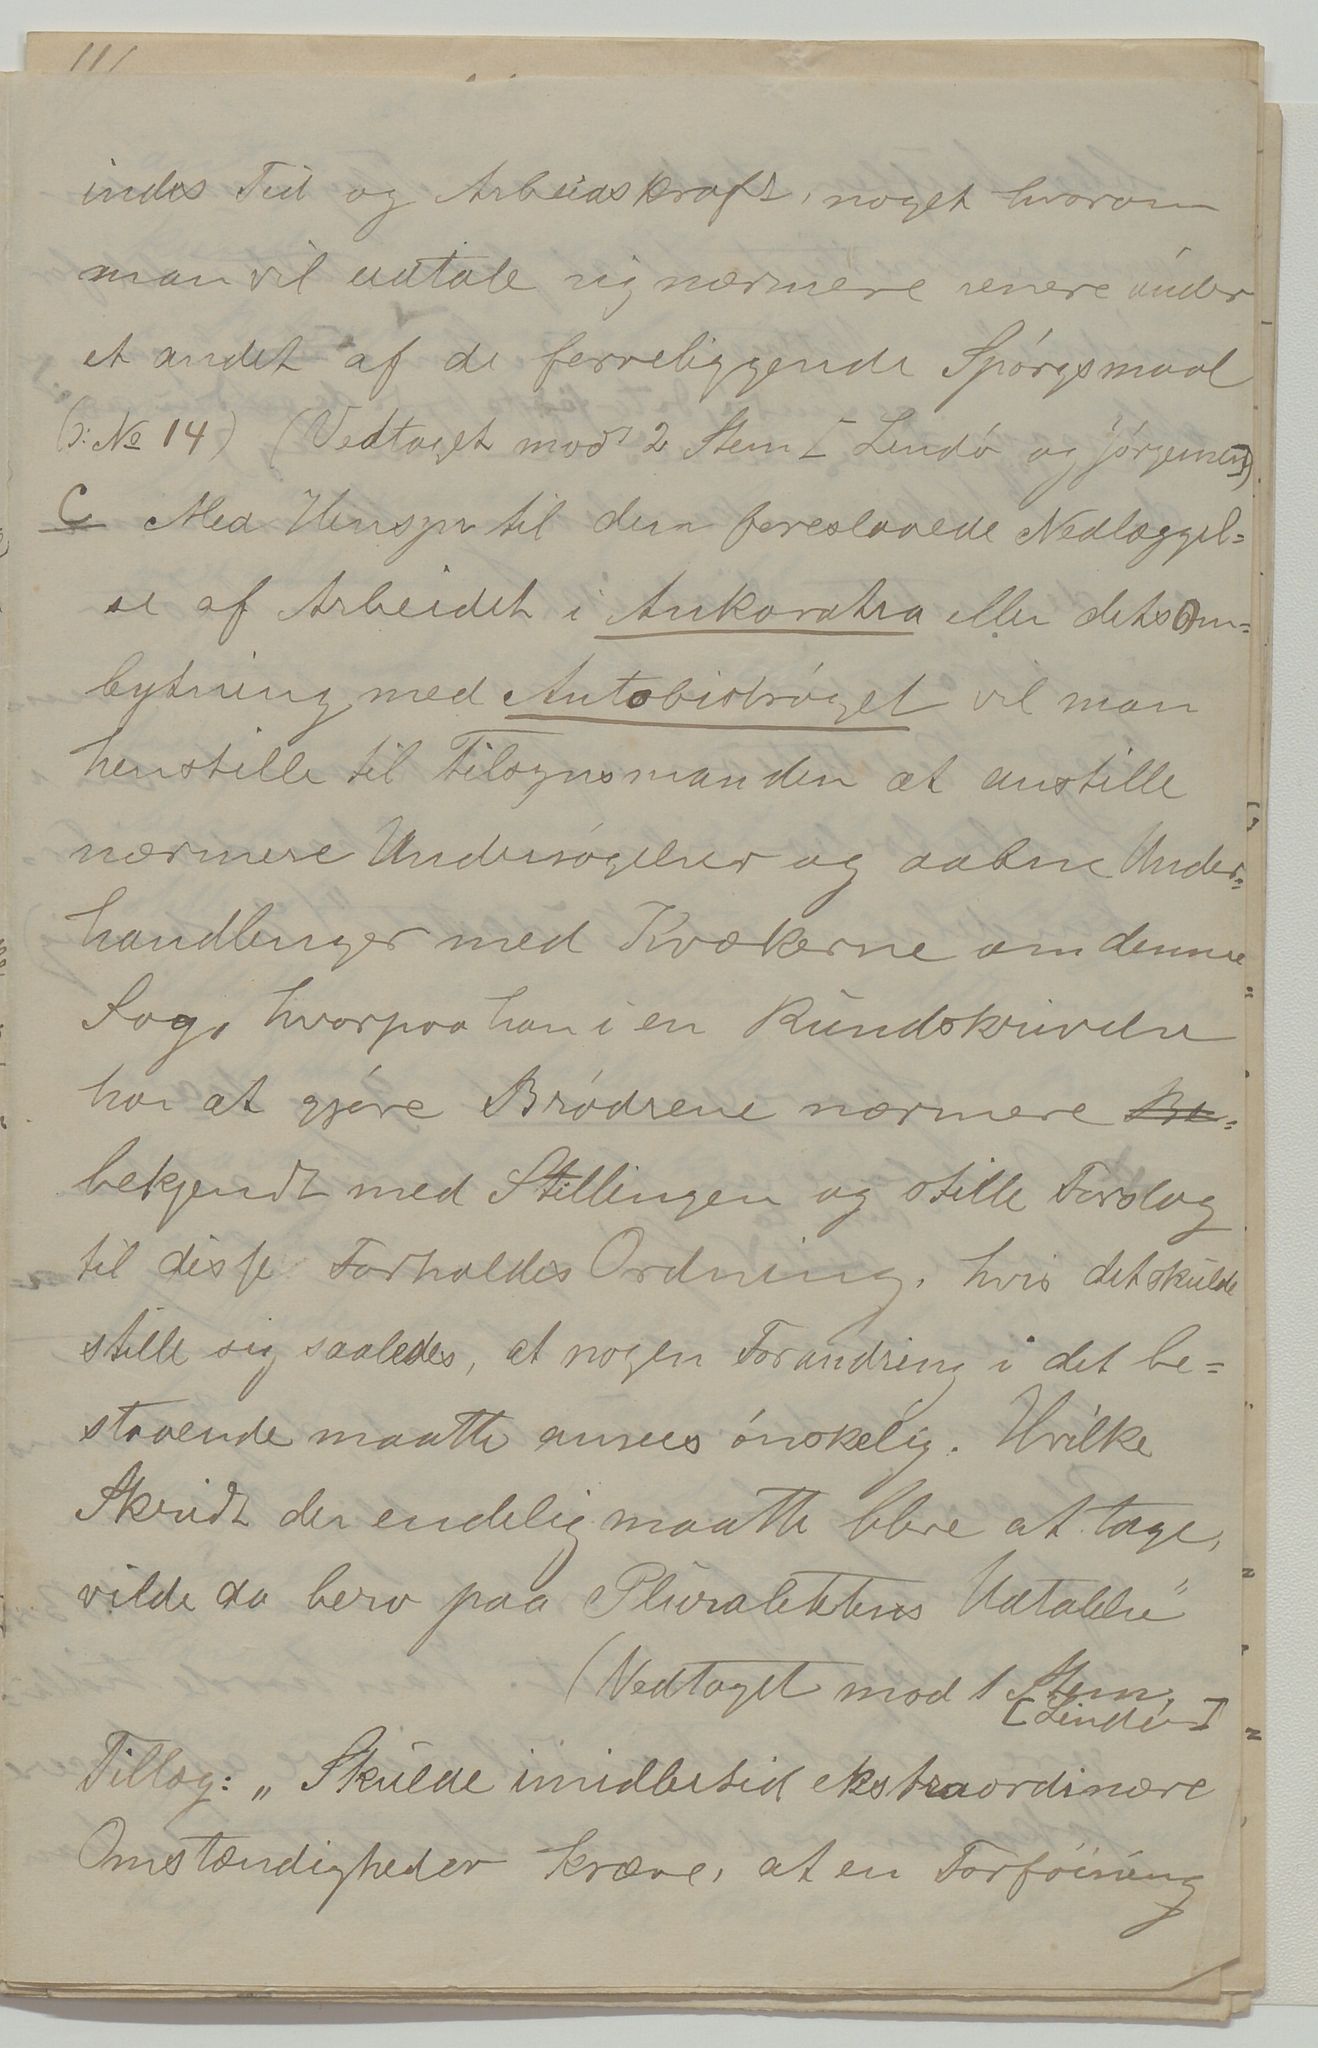 111
indes Tid og Arbeidskraft, noget hvorom
man vil udtale sig nærmere senere under
et andet af de forreliggende Spórgsmaal
(ɔ: № 14) (Vedtaget mod 2 Stem [Lindó og Jórgensen])
C Med Hensyn til den foreslaaede Nedlæggel=
se af Arbeidet i Ankaratra eller dets Om=
bytning med Antobistróget vil man
henstille til Tilsynsmanden at anstille
nærmere Undersógelser og aabne Under=
handlinger med Kvækerne om denne
Sag, hvorpaa han i en Rundskrivelse
har at gjóre Bródrene nærmere Be=
bekjendt med Stillingen og stille Forslag
til disse Forholdes Ordning, hvis det skulde
stille sig saaledes, at nogen Forandring i det be=
staaende maatte ansees ónskelig. Hvilke
Skridt der endelig maatte blive at tage,
vilde da bero paa Pluralitetens Udtalelse"
(Vedtaget mod 1 Stem,
[Lindó]
Tillæg: „Skulde imidlertid ekstraordinære
Omstændigheder kræve, at en Forfóining